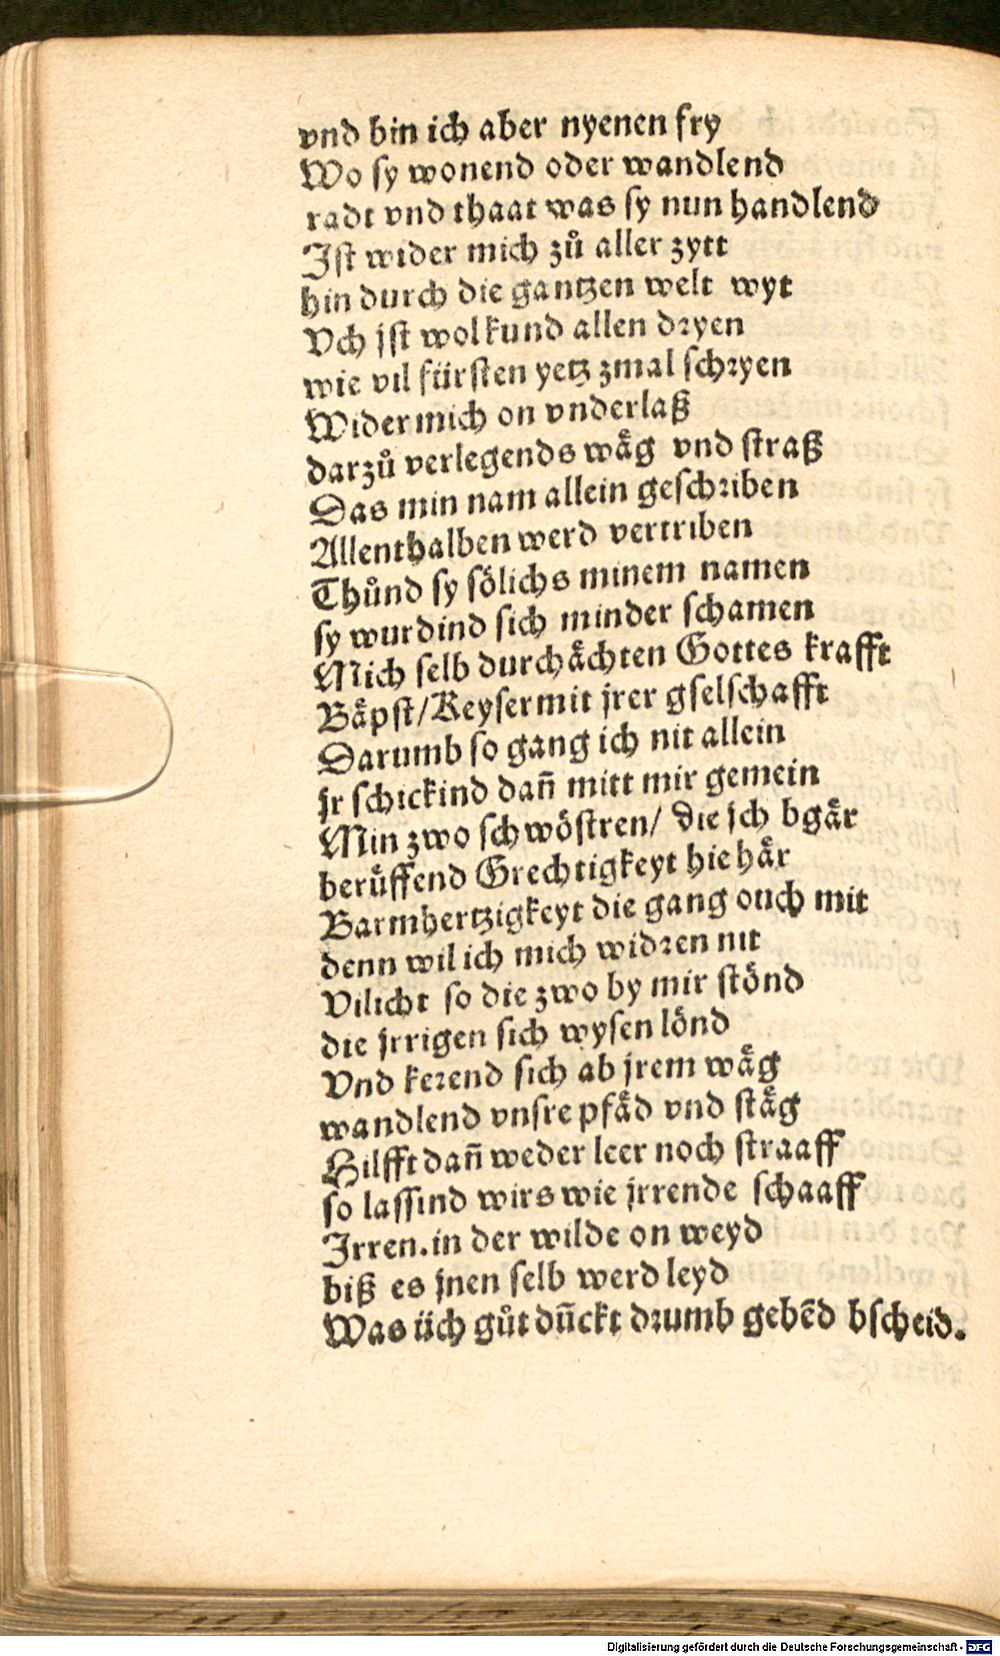 vnd bin ich aber nyenen fry
Wo sy wonend oder wandlend
radt vnd thaat was sy nun handlend
Jst wider mich zů aller zytt
hin durch die gantzen welt wyt
Vch jst wol kund allen dryen
wie vil fürsten yetz zmal schryen
Wider mich on vnderlaß
darzů verlegends wåg vnd straß
Das min nam allein geschriben
Allenthalben werd vertriben
Thůnd sy sölichs minem namen
sy wurdind sich minder schamen
Mich selb durchåchten Gottes krafft
Båpst/Keyser mit jrer gselschafft
Darumb so gang ich nit allein
jr schickind dañ mitt mir gemein
Min zwo schwöstren/ die jch bgår
berůffend Grechtigkeyt hie hår
Barmhertzigkeyt die gang ouch mit
denn wil ich mich widren nit
Vilicht so die zwo by mir stönd
die jrrigen sich wysen lönd
Vnd kerend sich ab jrem wåg
wandlend vnsre pfåd vnd ståg
Hilfft dañ weder leer noch straaff
so lassind wirs wie jrrende schaaff
Jrren.in der wilde on weyd
biß es jnen selb werd leyd
Was üch gůt duñckt drumb gebēd bscheid.
Digitalisierung gefördert durch die Deutsche Forschungsgemeinschaft - DFG